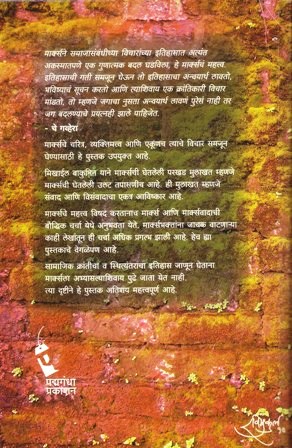 मार्क्सने समाजासंबंधीच्या विचारांच्या इतिहासात अत्यंत
अकस्मातपणे एक गुणात्मक बदल घडविला, हे मार्क्सचं महत्त्व.
इतिहासाची गती समजून घेऊन तो इतिहासाचा अन्वयार्थ लावतो,
भविष्याचं सूचन करतो आणि त्याशिवाय एक क्रांतिकारी विचार
मांडतो, तो म्हणजे जगाचा नुसता अन्वयार्थ लावणं पुरेसं नाही तर
जग बदलण्याचे प्रयत्नही झाले पाहिजेत.
- चे गव्हेरा
मार्क्सचे चरित्र, व्यक्तिमत्त्व आणि एकूणच त्याचे विचार समजून
घेण्यासाठी हे पुस्तक उपयुक्त आहे.
मिखाईल बाकुनिन याने मार्क्सची घेतलेली परखड मुलाखत म्हणजे
मार्क्सची घेतलेली उलट तपासणीच आहे. ही मुलाखत म्हणजे
संवाद आणि विसंवादाचा एकत्र आविष्कार आहे.
मार्क्सचे महत्त्व विषद करतानाच मार्क्स आणि मार्क्सवादाची
बौद्धिक चर्चा येथे अनुभवता येते. मार्क्सभक्तांना जाचक वाटणाऱ्या
काही लेखांतून ही चर्चा अधिक प्रगल्भ झाली आहे. हेच ह्या
पुस्तकाचे वेगळेपण आहे.
सामाजिक क्रांतीचा व स्थित्यंतराचा इतिहास जाणून घेताना
मार्क्सला अभ्यासल्याशिवाय पुढे जाता येत नाही.
त्या दृष्टीने हे पुस्तक अतिशय महत्त्वपूर्ण आहे.
पद्मगंधा
प्रकाशन